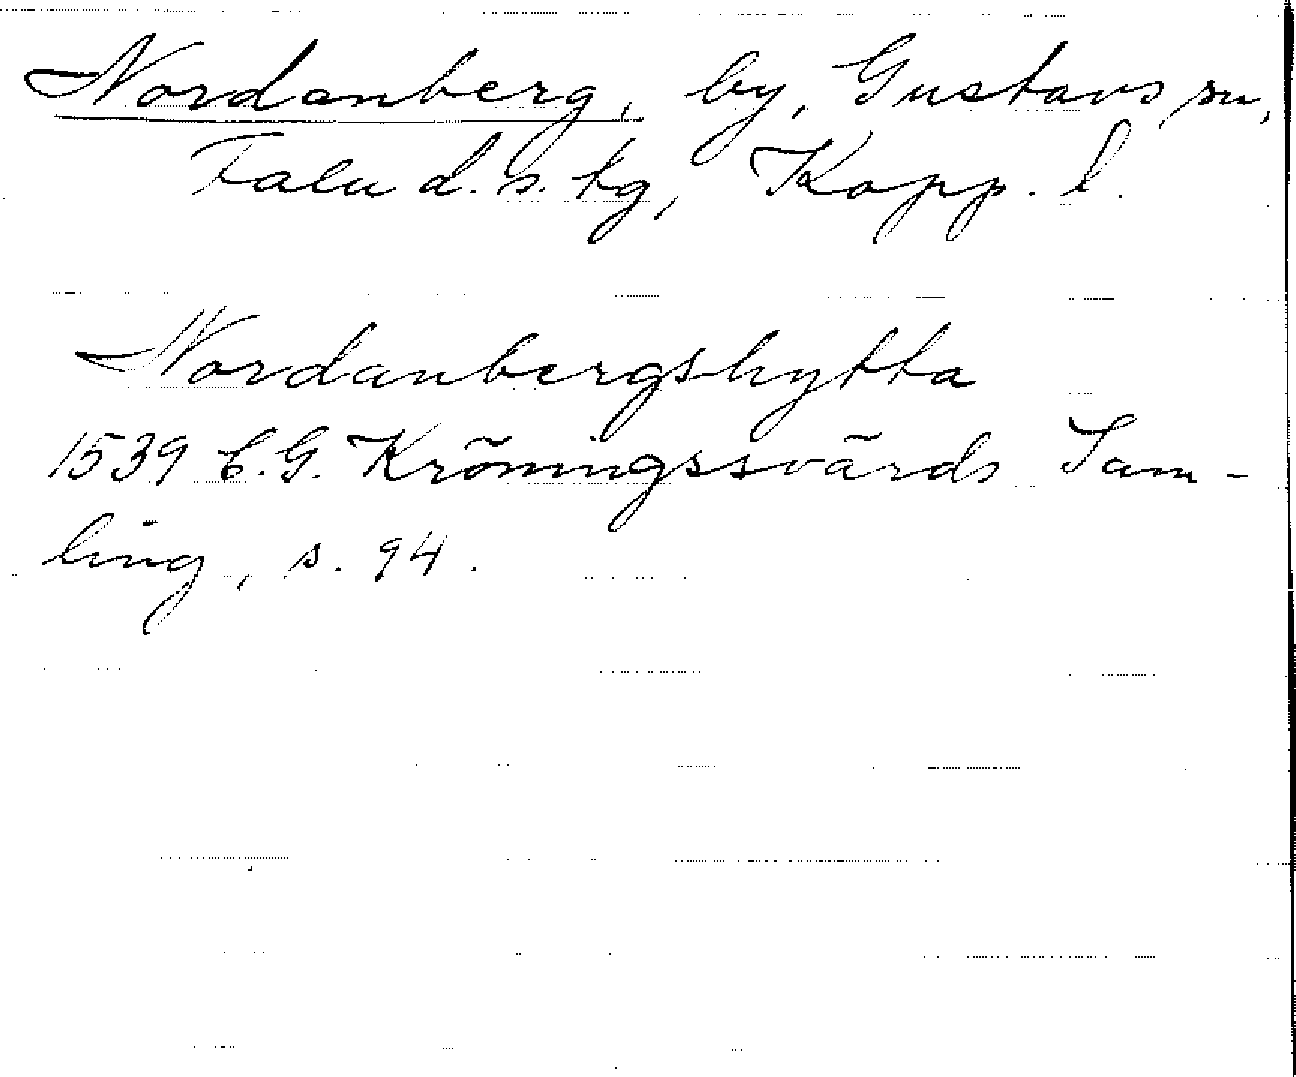 Nordanberg, by, Gustavs sn,
Falu d. s. tg, Kopp. l.
Nordanbergshytta
1539 C.G. Kröningssvärds Sam-
ling, s. 94.